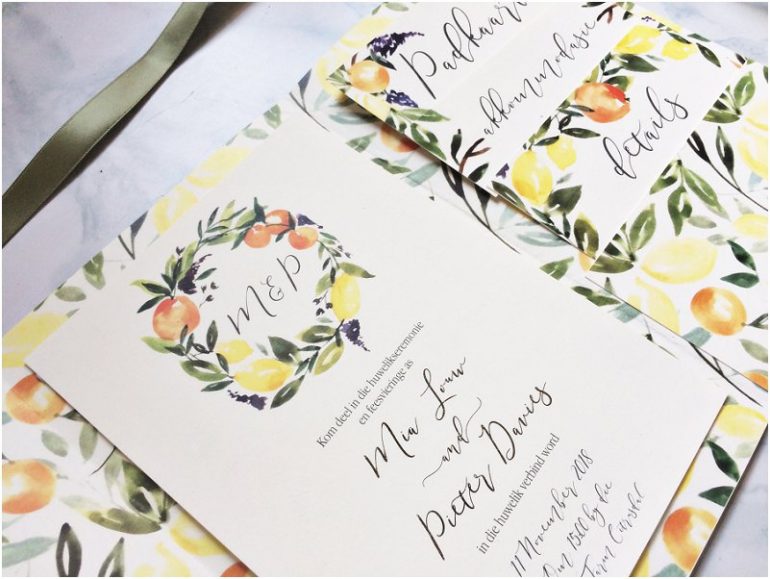 Padkaart
akkommodasie
details
M & P
Kom deel in die huweliksseremonie
en feesvieringe as
Mia Louw
and
Pieter Davis
in die huwelik verbind word
17 November 2018
Om 15:00 by die